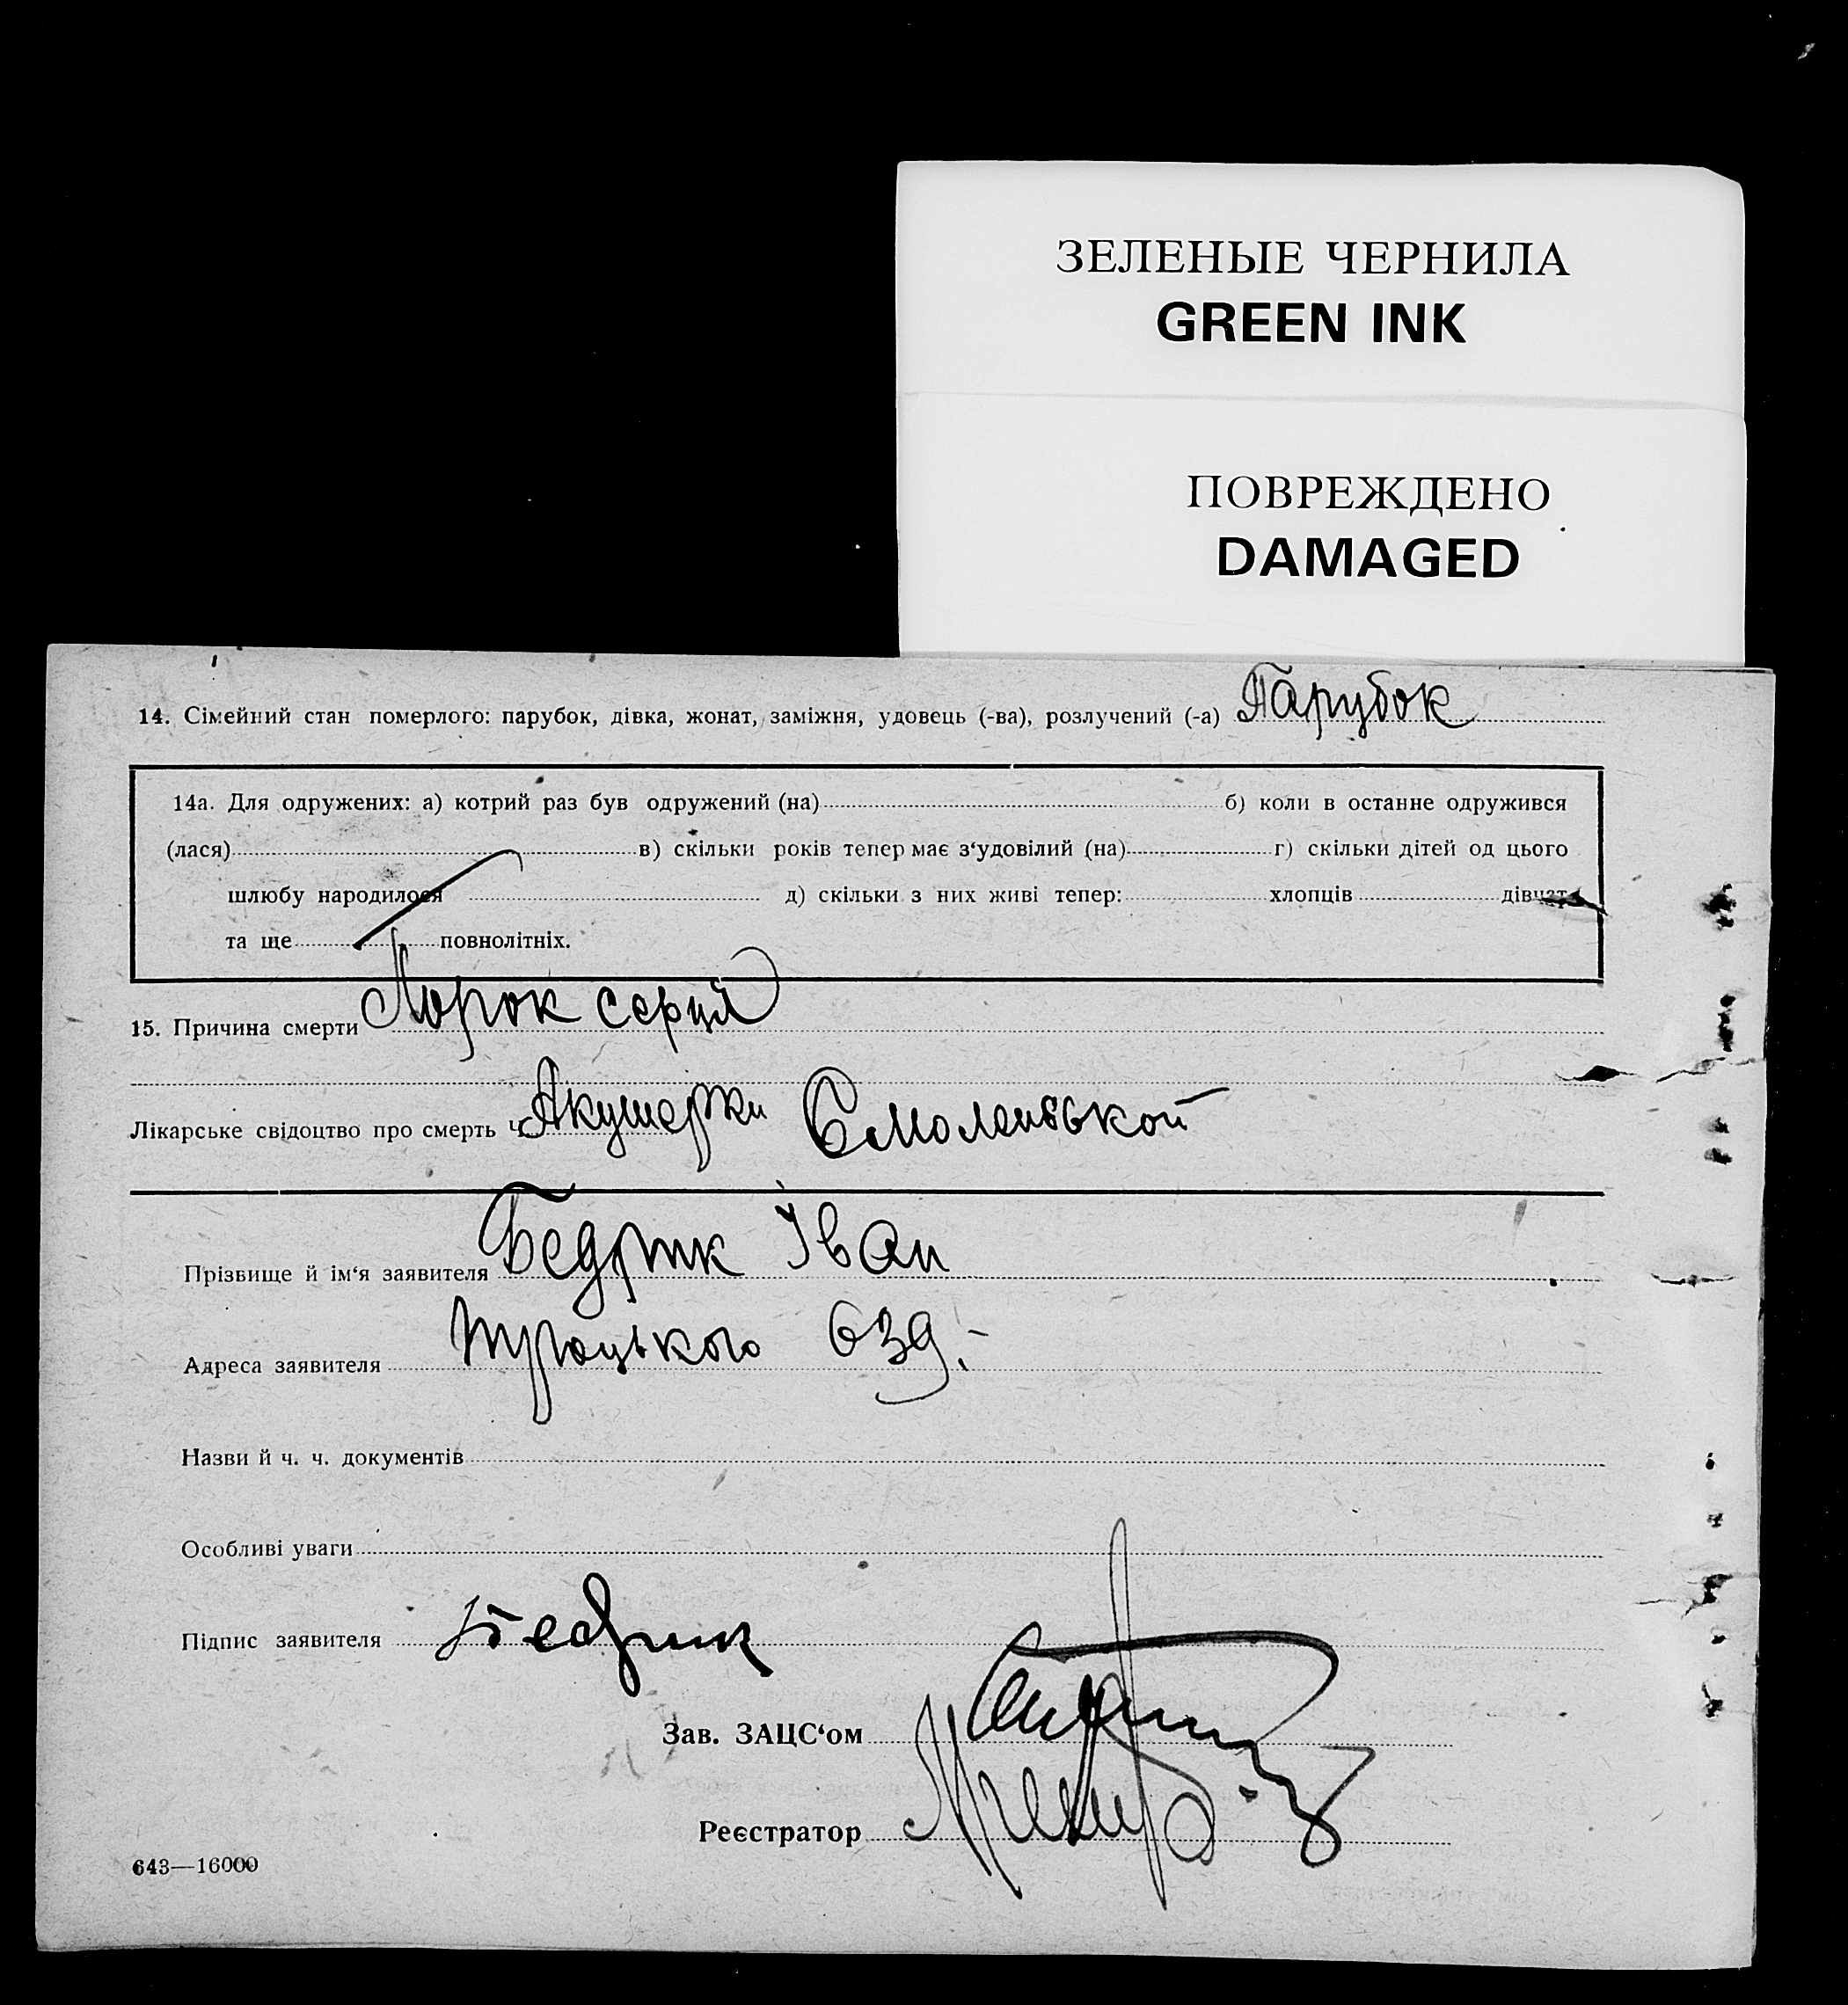 ЗЕЛЕНЫЕ ЧЕРНИЛА
GREEN INK
ПОВРЕЖДЕНО
DAMAGED
14. Сімейний стан померлого: парубок, дівка, жонат, заміжня, удовець (-ва), розлучений (-а) Парубок
14а. Для одружених: а) котрий раз був одружений (на) б) коли в останнє одружився
(лася) в) скільки років тепер має з‘удовілий (на) г) скільки дітей од цього
шлюбу народилося д) скільки з них живі тепер: хлопців дівчат
та ще повнолітніх.
15. Причина смерти Порок серця
Лікарське свідоцтво про смерть ч. Акушерки Смоленської
Прізвище й ім‘я заявителя Бедрик Іван
Адреса заявителя Троцького 63
Назви й ч. ч. документів
Особливі уваги
Підпис заявителя Бедрик
Зав. ЗАЦС‘ом
Реєстратор
643—16000